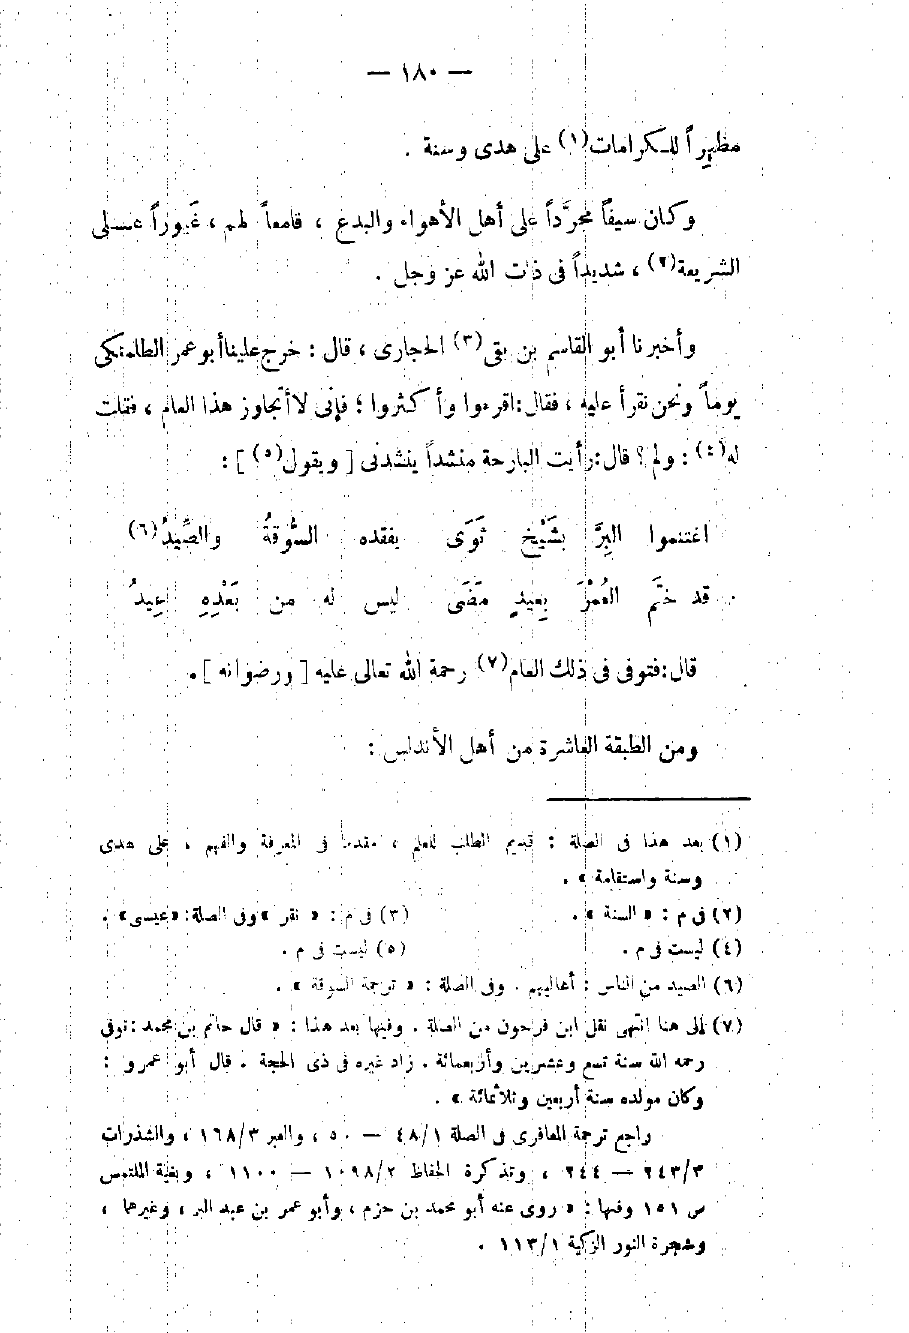 — ١٨٠ —
مظهراً للكرامات(١) على هدى وسنة .
وكان سيفاً مجرَّداً على أهل الأهواء والبدع ، قامعاً لهم ، غَيوراً عـــلى
الشريعة(٢) ، شديداً فى ذات الله عز وجل .
وأخبرنا أبو القاسم بن بقى(٣) الحجارى ، قال : خرج علينا أبو عمر الطلمنكى
يوماً ونحن نقرأ عليه ، فقال : اقرءوا وأكثروا ؛ فإنى لا أتجاوز هذا العام ، فقلت
له(٤) : ولم ؟ قال : رأيت البارحة منشداً ينشدنى [ ويقول(٥) ] :
اغتنموا البِرَّ بِشَيْخٍ ثَوَى يفقده السُّوقةُ والصِّيدُ(٦)
قد خَتَم العُمْرَ بِعِيدٍ مَضَى ليس له من بَعْدِهِ عِيدُ
قال : فتوفى فى ذلك العام(٧) رحمة الله تعالى عليه [ ورضوانه ] .
ومن الطبقة العاشرة من أهل الأندلس :
(١) بعد هذا فى الصلة : قديم الطلب للعلم ، مقدما فى المعرفة والفهم ، على هدى
وسنة واستقامة » .
(٢) فى م : « السنة » . (٣) فى م : « نقر » وفى الصلة : « عيسى » .
(٤) ليست فى م . (٥) ليست فى م .
(٦) الصيد من الناس : أعاليهم . وفى الصلة : « ترجمة السوقة » .
(٧) إلى هنا انتهى نقل ابن فرحون من الصلة . وفيها بعد هذا : « قال حاتم بن محمد : توفى
رحمه الله سنة تسع وعشرين وأربعمائة . زاد غيره فى ذى الحجة . قال أبو عمرو :
وكان مولده سنة أربعين وثلاثمائة » .
راجع ترجمة المعافرى فى الصلة ٤٨/١ — ٥٠ ، والعبر ١٦٨/٣ ، والشذرات
٢٤٣/٣ — ٢٤٤ ، وتذكرة الحفاظ ١٠٩٨/٢ — ١١٠٠ ، وبغية الملتمس
ص ١٥١ وفيها : « روى عنه أبو محمد بن حزم ، وأبو عمر بن عبد البر ، وغيرهما ،
وشجرة النور الزكية ١١٣/١ .